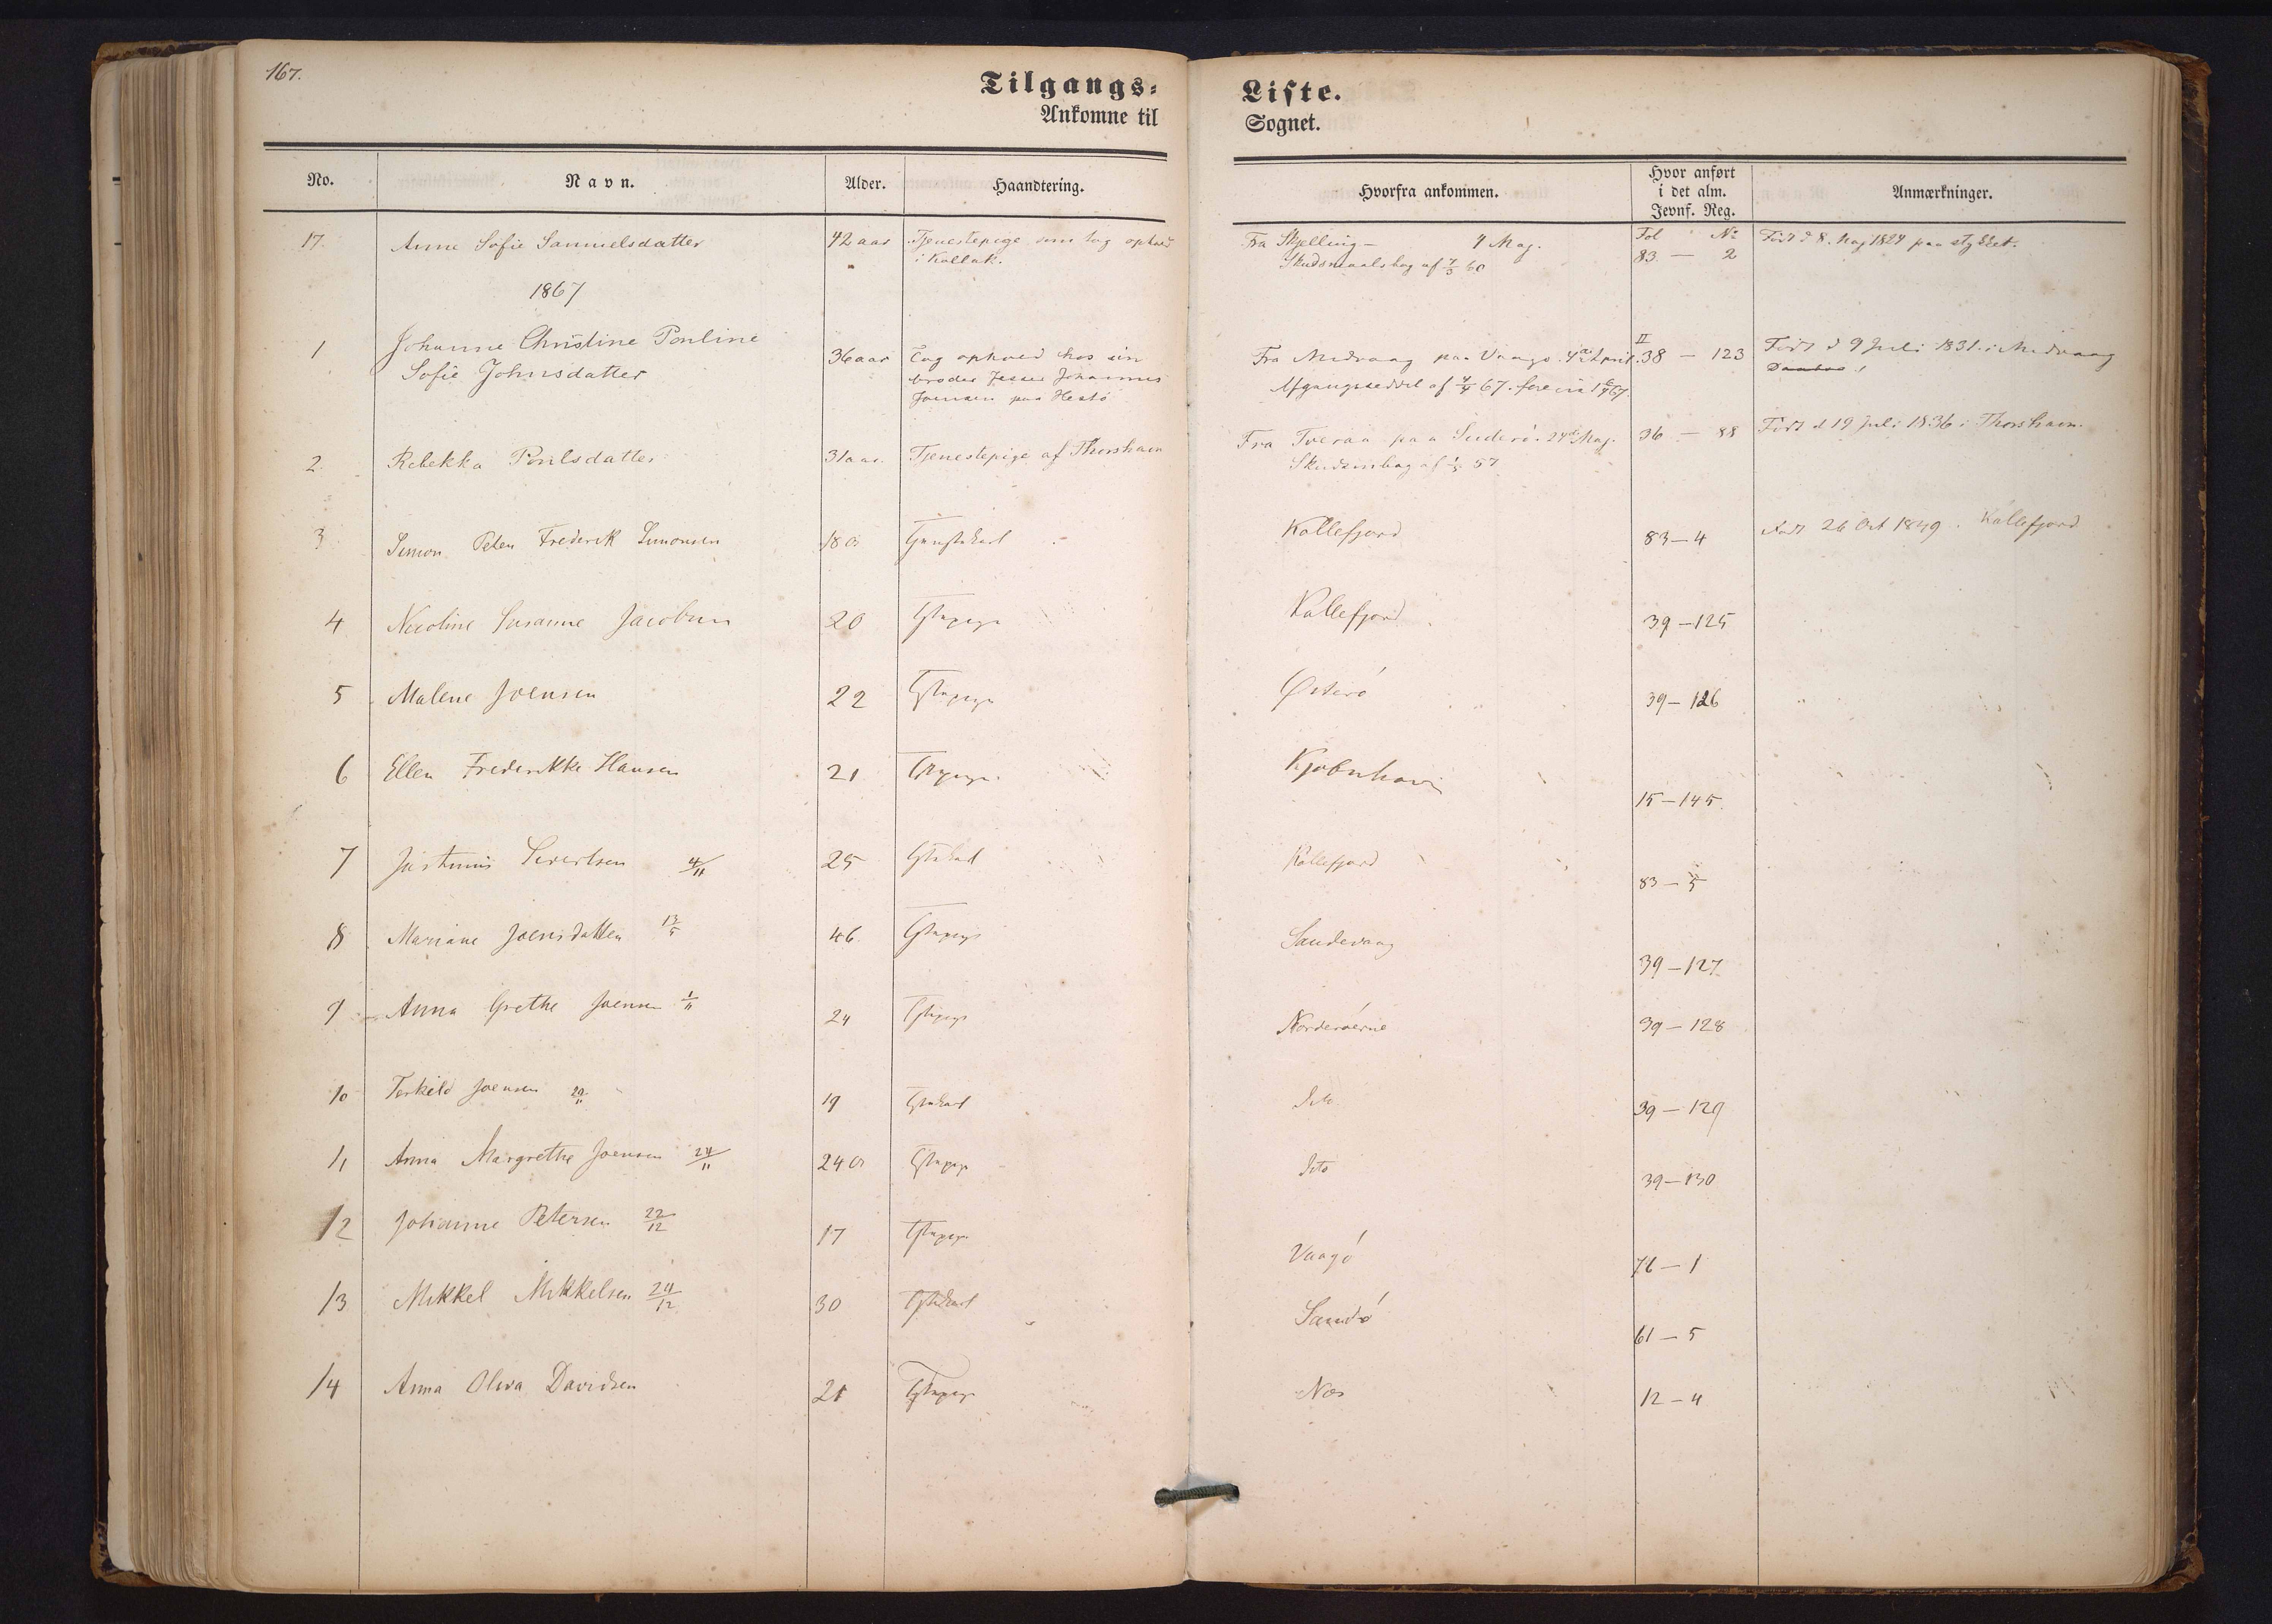 167.
Tilgangs-
Ankomne til
Liste.
Sognet.
No. Navn. Alder. Haandtering. Hvorfra ankommen. Hvor anført i det alm. Jevnf. Reg. Anmærkninger.
17. Anne Sofie Samuelsdatter 42 aar Tjenestepige som tog ophold Fra Skjelling — 4 Maj. Fol No Født d 8. Maj 1824 paa stykket.
i Kollak. Skudsmaalsbog af 7/5 60 83 — 2
1867
1 Johanne Christine Pouline 36 aar Tog ophold hos sin Fra Midvaag paa Vaagø. 4de April. II 38 — 123 Født d 9 Juli 1831. i Midvaag
Sofie Johnsdatter broder Johannes Afgangsseddel af 4/4 67.
Joensen paa Hestø
2. Rebekka Poulsdatter 31 aar. Tjenestepige af Thorshavn Fra Tveraa paa Suderø. 24de Maj. 36 — 88 Født d 19 Juli 1836 i Thorshavn.
Skudsmbog af 1/5 57
3 Simon Peter Frederik Simonsen 18 a Tjenestekarl Kollefjord 83—4 født 26 Oct 1849. Kollefjord
4 Nicoline Susanne Jacobsen 20 Tjstepige Kollefjord 39—125
5 Malene Joensen 22 Tjstepige Østerø 39—126
6 Ellen Frederikke Hansen 21 Tjstepige Kjøbenhavn 15—145.
7 Justinus Sivertsen 4/11 25 Tjstekarl Kollefjord 83—5
8 Mariane Joensdatter 46 Tjstepige Sandevaag 39—127
9 Anna Grethe Joensen 1/11 24 Tjstepige Norderøerne 39—128
10 Terkild Joensen 20/11 19 Tjstekarl Dito 39—129
11 Anna Margrethe Joensen 24/11 24 a Tjstepige Dto 39—130
12 Johanne Petersen 22/12 17 Tjstepige Vaagø 76—1
13 Mikkel Mikkelsen 24/12 30 Tjstekarl Sandø 61—5
14 Anna Oliva Davidsen 21 Tjstepige Næs 12—4